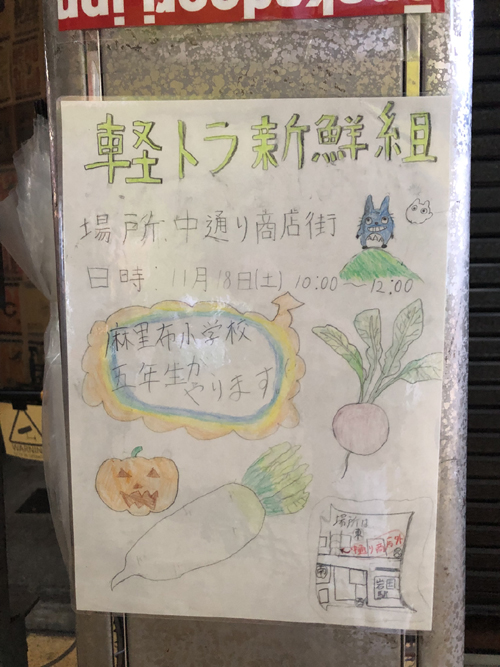 軽トラ新鮮組
場所:中通り商店街
日時:11月18日(土) 10:00〜12:00
麻里布小学校
五年生が
やります
場所は
岩国
駅
WARNING